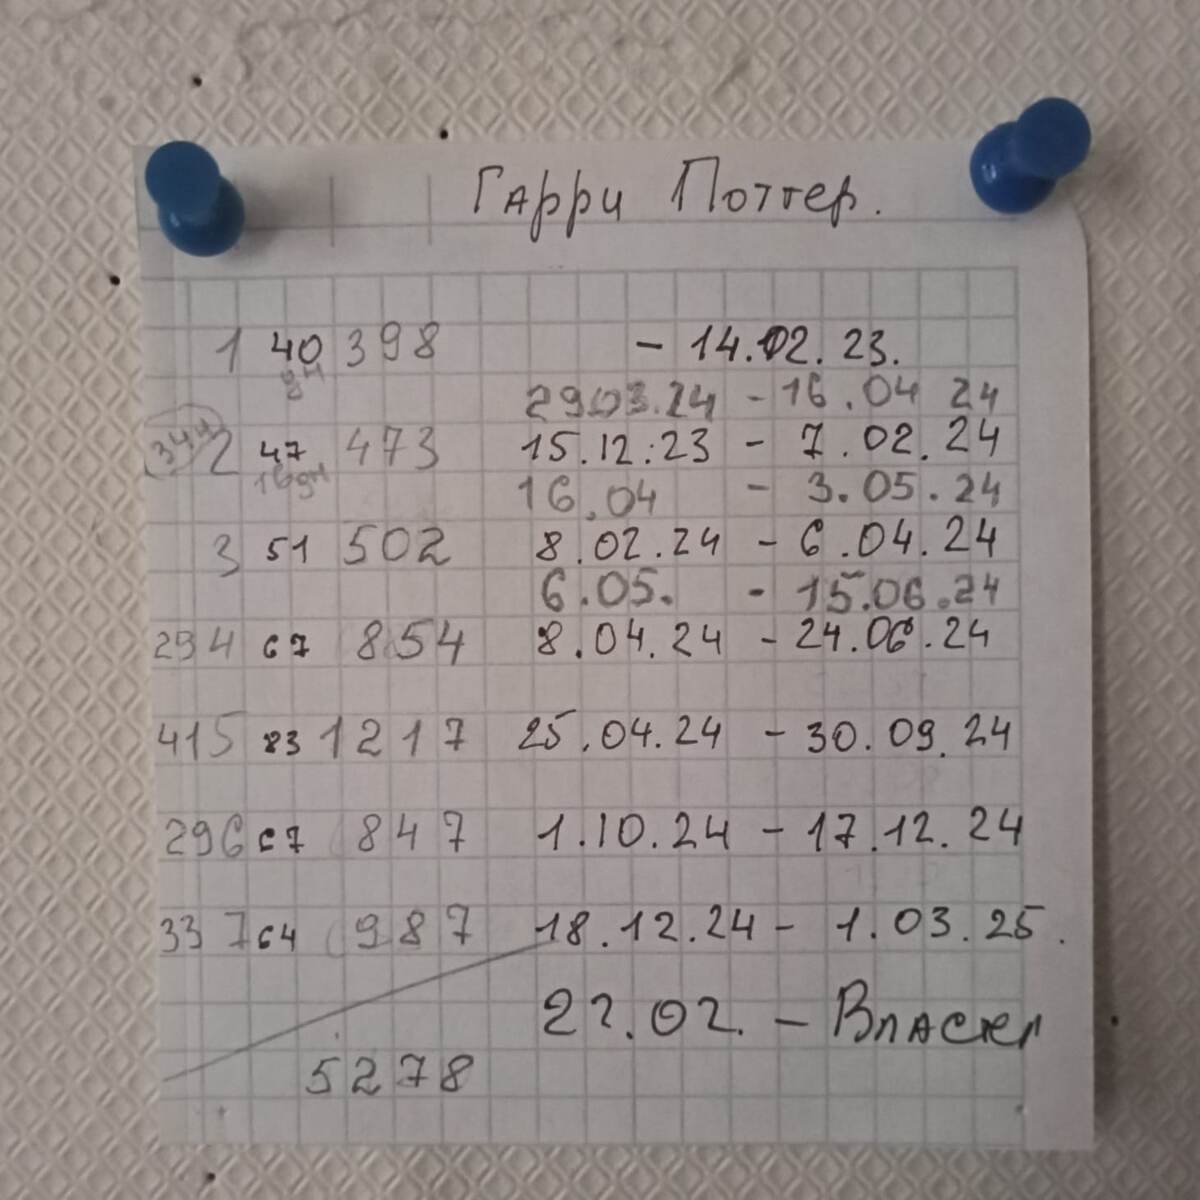 Гарри Поттер.
1 40 398 - 14.02.23.
дн 29.03.24 - 16.04 24
2 47 473 15.12.23 - 7.02.24
16дн 16.04 - 3.05.24
3 51 502 8.02.24 - 6.04.24
6.05. - 15.06.24
294 67 854 8.04.24 - 24.06.24
415 83 1217 25.04.24 - 30.09.24
296 67 847 1.10.24 - 17.12.24
337 64 987 18.12.24 - 1.03.25.
22.02. - Властел
5278